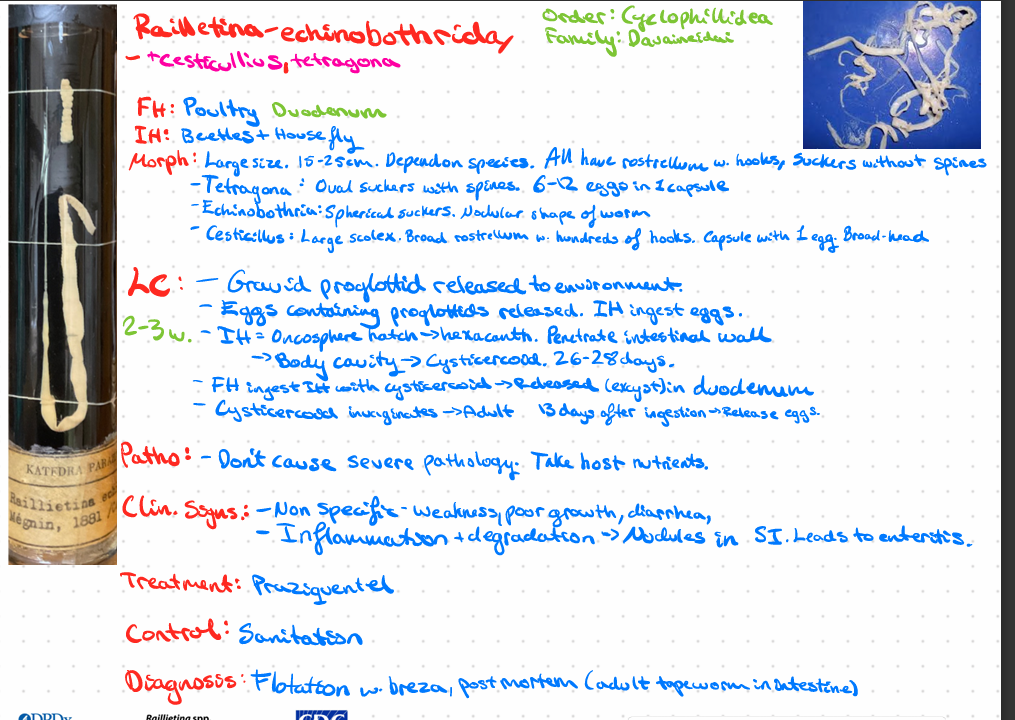 Raillietina-echinobothrida,
- +cesticullius, tetragona
Order: Cyclophillidea
Family: Davaineidai
FH: Poultry Duodenum
IH: Beetles + House fly
Morph: Large size. 15-25cm. Depend on species. All have rostrellum w. hooks, Suckers without spines
- Tetragona: Oval suckers with spines. 6-12 eggs in 1 capsule
- Echinobothria: Spherical suckers. Nodular shape of worm
- Cesticillus: Large scolex. Broad rostrellum w. hundreds of hooks. Capsule with 1 egg. Broad-head
LC: - Gravid proglottid released to environment.
- Eggs containing proglottids released. IH ingest eggs.
2-3 w.
- IH = Oncosphere hatch → hexacanth. Penetrate intestinal wall
→ Body cavity → Cysticercoid. 26-28 days.
- FH ingest IH with cysticercoid → Released (excyst) in duodenum
- Cysticercoid invaginates → Adult 13 days after ingestion → Release eggs.
Patho: - Don't cause severe pathology. Take host nutrients.
Clin. Signs.: - Non specific - weakness, poor growth, diarrhea,
- Inflammation + degradation → Nodules in SI. Leads to enteritis.
Treatment: Praziquentel
Control: Sanitation
Diagnosis: Flotation w. breza, post mortem (adult tapeworm in intestine)
KATEDRA PARA
Raillietina ech
Mégnin, 1881
DPDx
Raillietina spp.
CDC